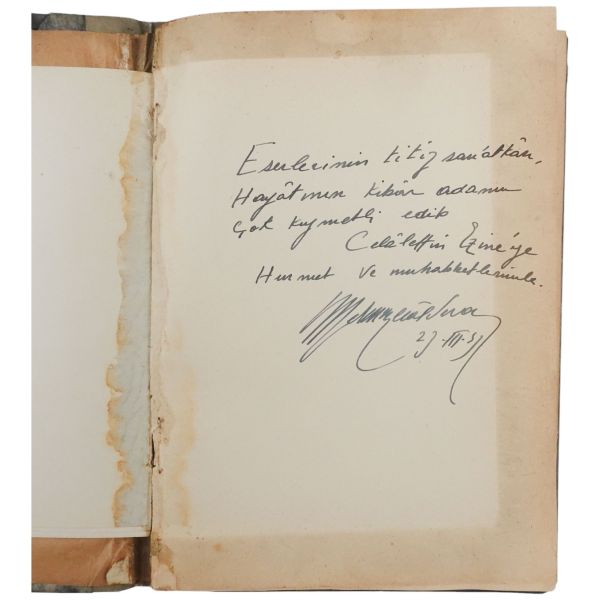 Eserlerinin titiz san'atkârı,
Hayâtının kibâr adamı
Çok kıymetli edib
Celâlettin Ezine'ye
Hürmet ve muhabbetlerimle.